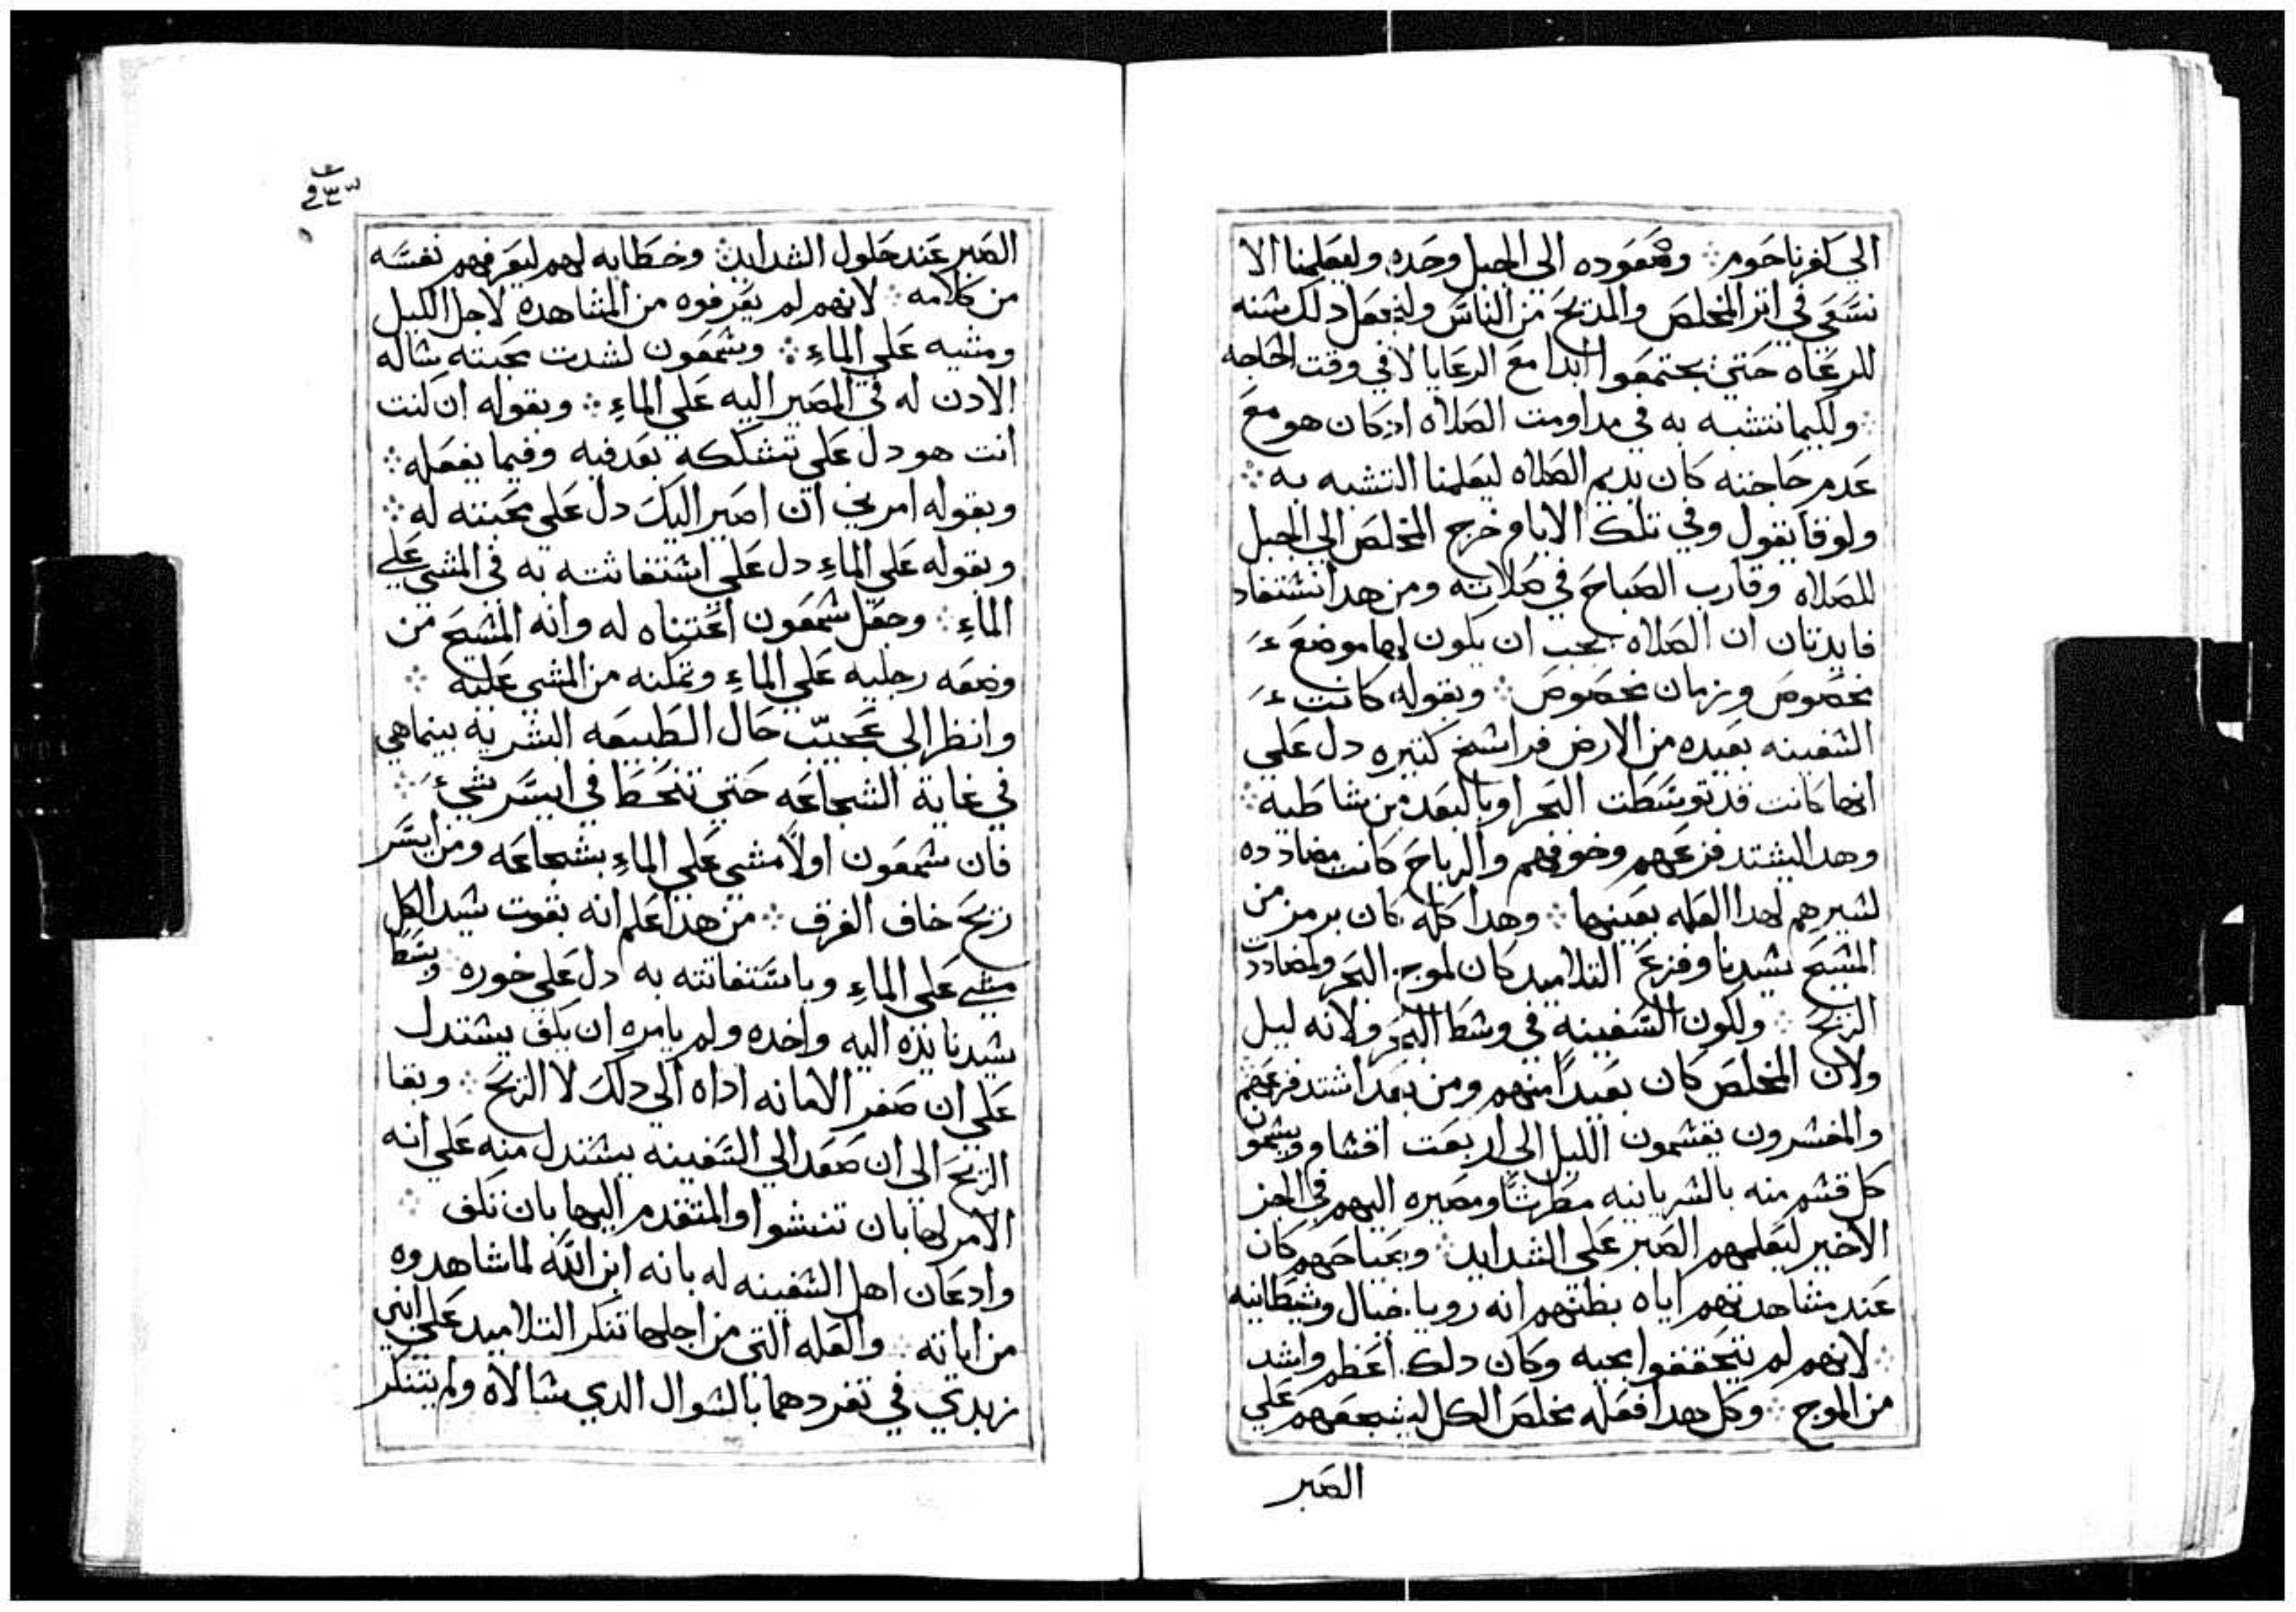 الي كفرناحوم ܀ وصعوده الي الجبل وحده وليعلمنا الا
نسعي في اثر المخلص والمديح من الناس وليجعل دلك سنه
للرعاه حتي يجتمعوا ابدا مع الرعايا لا في وقت الحاجه
܀ ولكيما نتشبه به في مداومت الصلاه اد كان هو مع
عدم حاجته كان يديم الصلاه ليعلمنا التشبه به ܀
ولوقا يقول وفي تلك الايام خرج المخلص الي الجبل
للصلاه وقارب الصباح في صلاته ومن هدا نستفاد
فايدتان ان الصلاه يجب ان يكون لها موضع
مخصوص وزمان مخصوص ܀ وبقوله كانت
السفينه بعيده من الارض فراسخ كثيره دل علي
انها كانت قد توسطت البحر او بالبعد من شاطيه ܀
وهدا ليشتد فزعهم وخوفهم والرياح كانت مضادده
لسيرهم لهدا العله بعينها ܀ وهدا كله كان برمز من
المسيح سيدنا وفزع التلاميد كان لموج البحر ولمضاددت
الريح ܀ ولكون السفينه في وسط البحر ولانه ليل
ولان المخلص كان بعيدا منهم ومن بعد اشتد فزعهم
والمفسرون يقسمون الليل الي اربعت اقسام ويسمون
كل قسم منه بالسريانيه مطرتا ومصيره اليهم في الجز
الاخير ليعلمهم الصبر علي الشدايد ܀ وبصياحهم كان
عند مشاهدتهم اياه بظنهم انه رويا خيال وشيطانيه
܀ لانهم لم يتحققوا مجيه وكان دلك اعظم واشد
من الموج ܀ وكل هدا فعله مخلص الكل ليشجعهم علي
الصبر
الصبر عند حلول الشدايد ܀ وخطابه لهم ليعرفهم نفسه
من كلامه ܀ لانهم لم يعرفوه من المشاهده لاجل الليل
ومشيه علي الماء ܀ وشمعون لشدت محبته ساله
الادن له في المصير اليه علي الماء ܀ وبقوله ان كنت
انت هو دل علي تشككه بعد فيه وفيما يفعله ܀
وبقوله امرني ان اصير اليك دل علي محبته له ܀
وبقوله علي الماء دل علي استغاثته به في المشي علي
الماء ܀ وجعل شمعون اعتناه له وانه المسيح من
وضعه رجليه علي الماء وتمكنه من المشي عليه ܀
وانظر الي عجيب حال الطبيعه البشريه بينما هي
في غاية الشجاعه حتي تنحط في ايسر شيء ܀
فان شمعون اولا مشي علي الماء بشجاعه ومن ايسر
ريح خاف الغرق ܀ من هدا اعلم انه بقوت سيد الكل
مشي علي الماء وباستغاثته به دل علي خوره ܀ وبسط
سيدنا يده اليه واخده ولم يامره ان يكف يستدل
علي ان صغر الامانه اداه الي دلك لا الريح ܀ وبقا
الريح الي ان صعد الي السفينه يستدل منه علي انه
الامر لها بان تنشوا والمتقدم اليها بان تكف ܀
وادعان اهل السفينه له بانه ابن الله لما شاهدوه
من اياته ܀ والعله التي من اجلها تنكر التلاميد علي ابني
زبدي في تفردهما بالسوال الدي سالاه ولم يتنكر